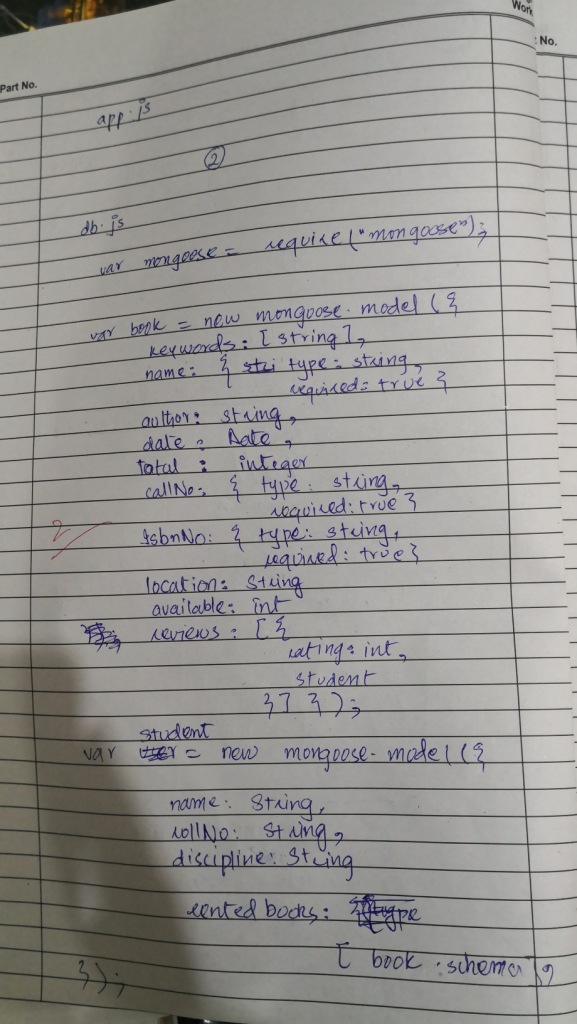 Work
No.
Part No.
app.js
2
db.js
var mongoose = require("mongoose");
var book = new mongoose.model({
keywords: [string],
name: { type: string,
required: true }
author: string,
date : Date,
total : integer
callNo: { type: string,
required: true }
2
IsbnNo: { type: string,
required: true }
location: String
available: int
reviews : [{
rating: int,
student
}] });
var student = new mongoose.model({
name: String,
rollNo: String,
discipline: String
rented books:
[ book : schema ],
});